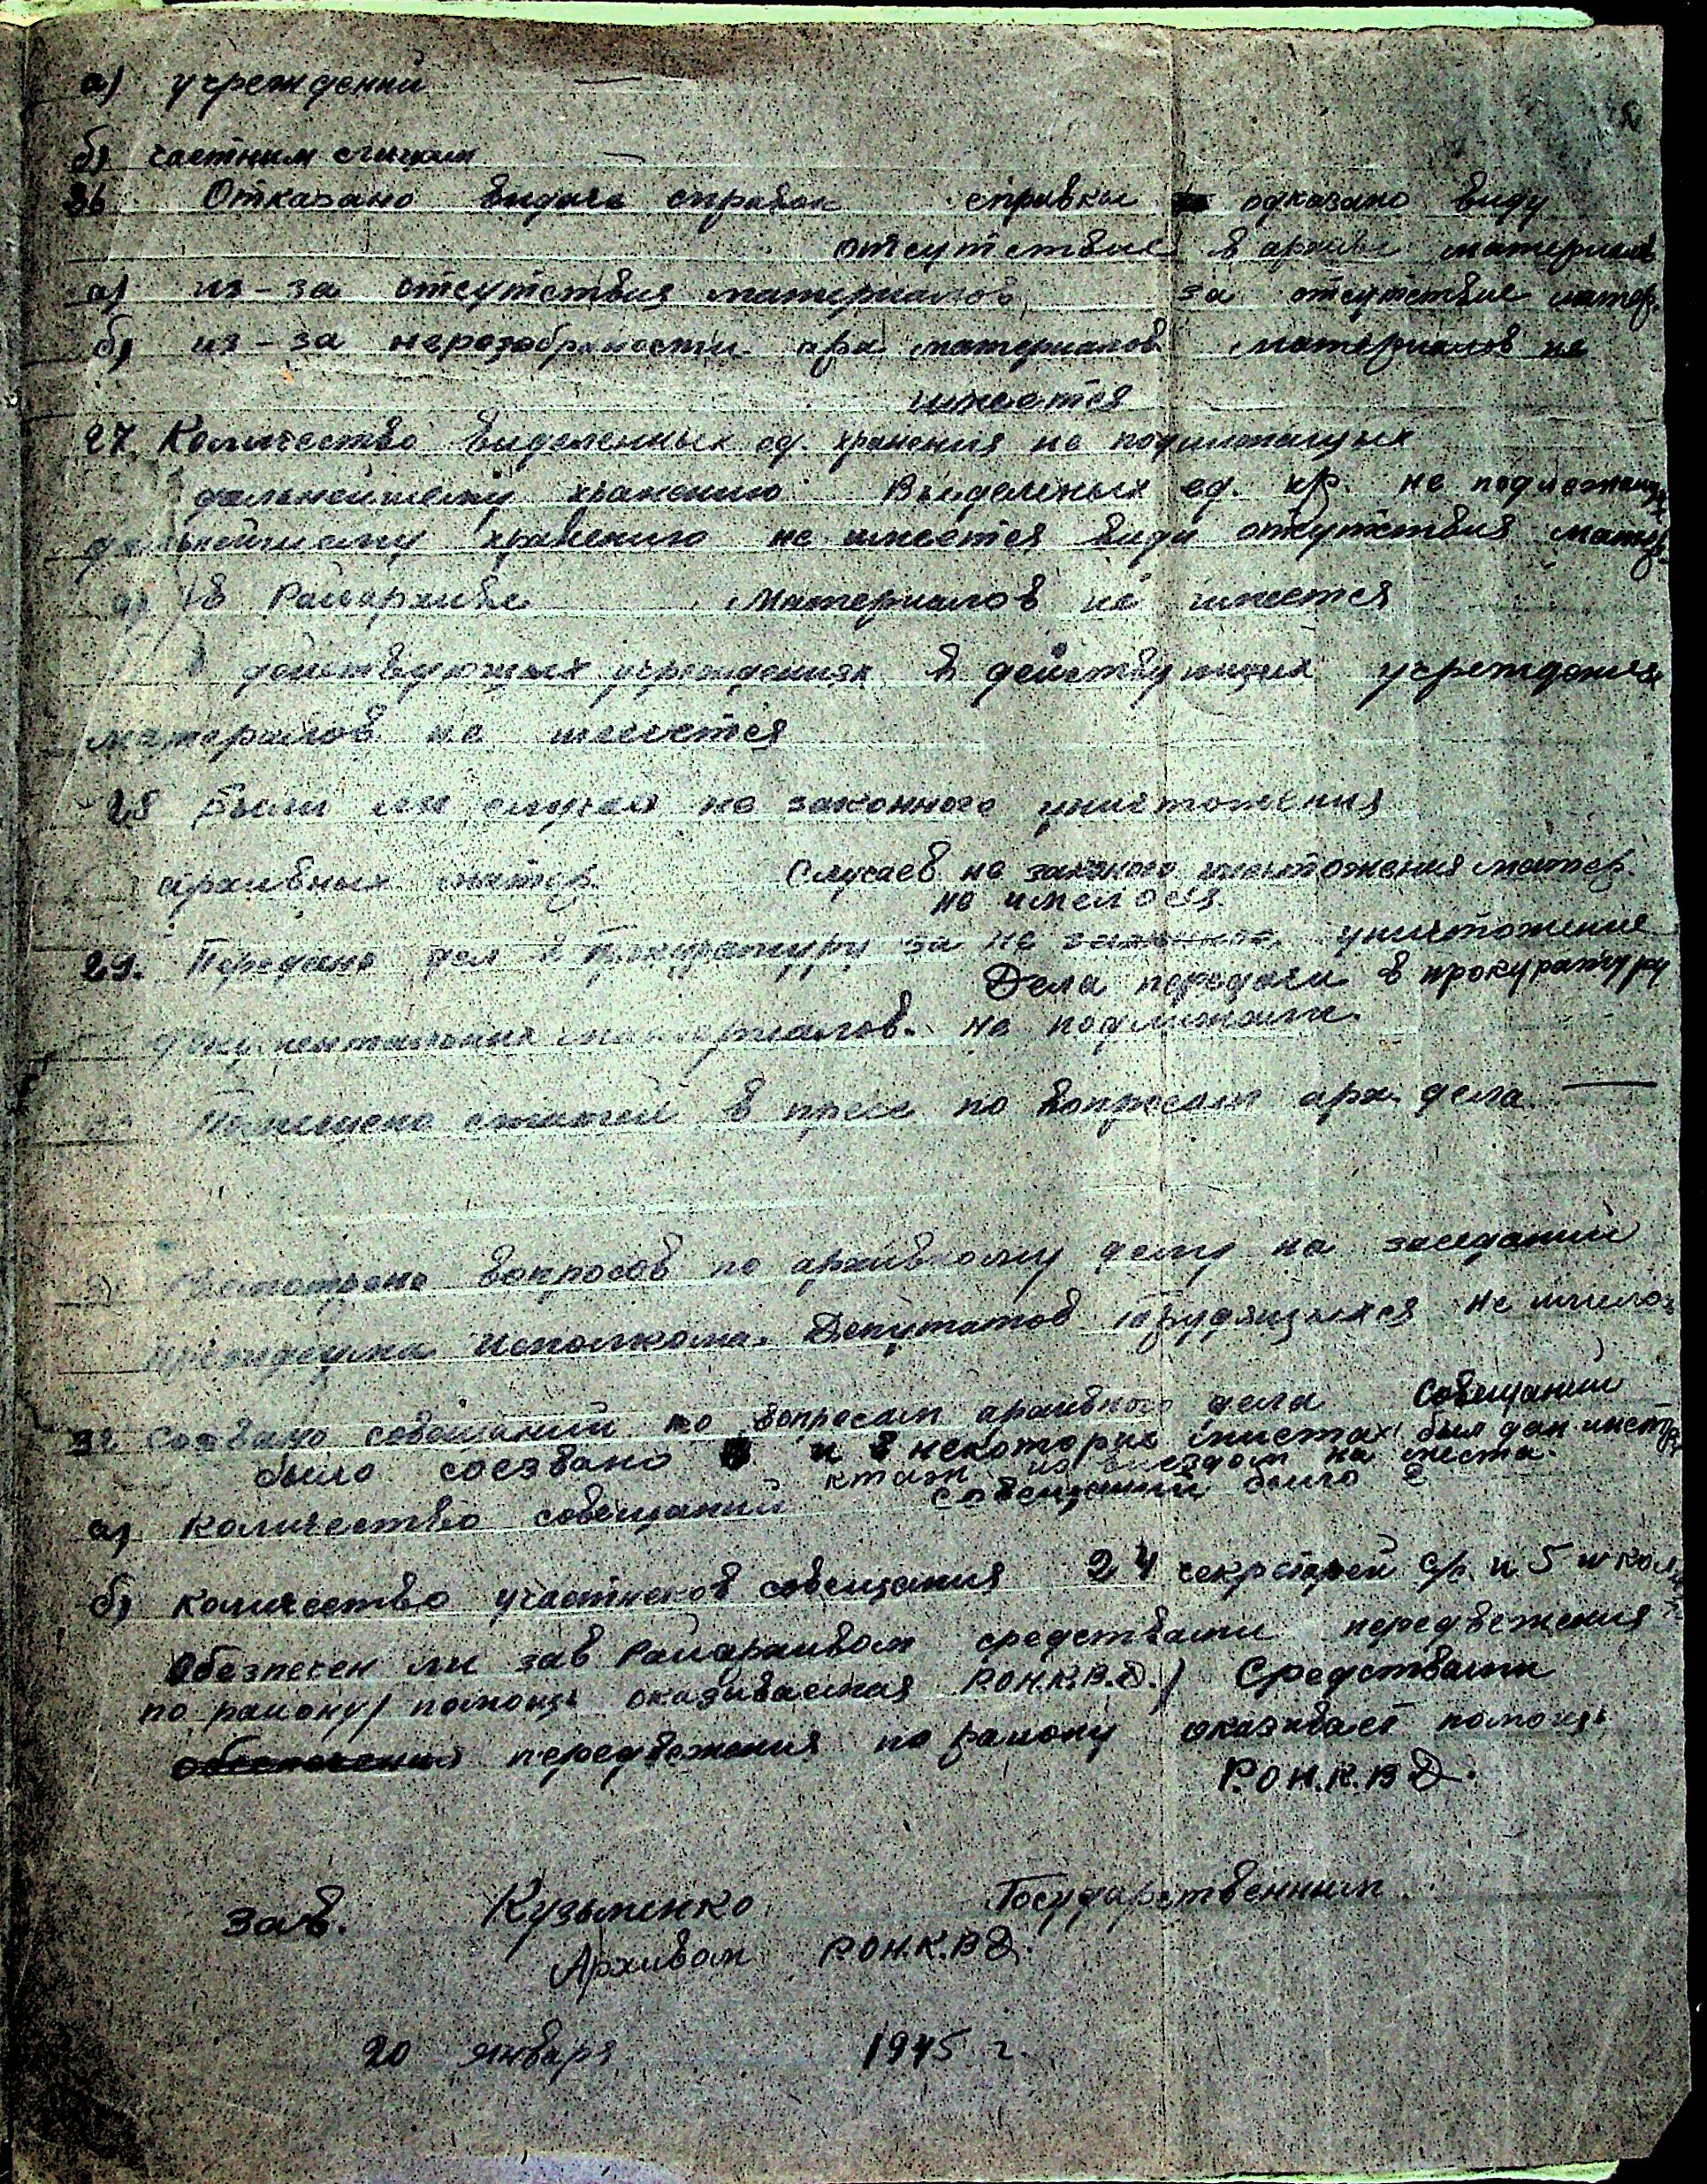 а) учреждений —
б) частним лицам —
26 Отказано видаче справок справки одказано виду
отсутствие в архиве материалов
а) из-за отсутствия материалов за отсутствие матер.
б) из-за неразобраности арх. материалов материалов не
имеется
27. Количество виделенных ед. хранения не подлижащих
дальнейшему хранению Виделеных ед. хр. не подлежащих
дальнейшему хранению не имеется виду отсутствия матер.
а) в Райархиве материалов не имеется
действующых учреждениях в действующих учреждениях
материалов не имеется
28 Были ли случаи не законного уничтожения
архивных матер. Случаев не законого уничтожения матер.
не имелося.
29. Передано дел в Прокуратуру за не законное уничтожение
Дела передачи в прокуратуру
документальних материалов. не подлижали.
Помещено статей в пресе по вопросам арх. дела —
вопросов по архивному делу на заседаний
президиума исполкома. Депутатов трудящыхся не имело
32 Созвано совещаний по вопросам архивного дела Совещаний
было соезвано и в некоторых мистах был дан инстру
ктаж из виездом на места.
а) Количество совещаний совещаний было 2
б) количество участнеков совещания 24 секретарей с/р. и 5 школ
Обезпечен ли зав Райархивом средствами передвежения
по району/ помощь оказываемая Р.О.Н.К.В.Д./ Средствами
передвежения по району оказивает помощь
Р.О.Н.К.В.Д.
Зав. Кузьменко Государственним
Архивом Р.О.Н.К.В.Д.
20 января 1945 г.